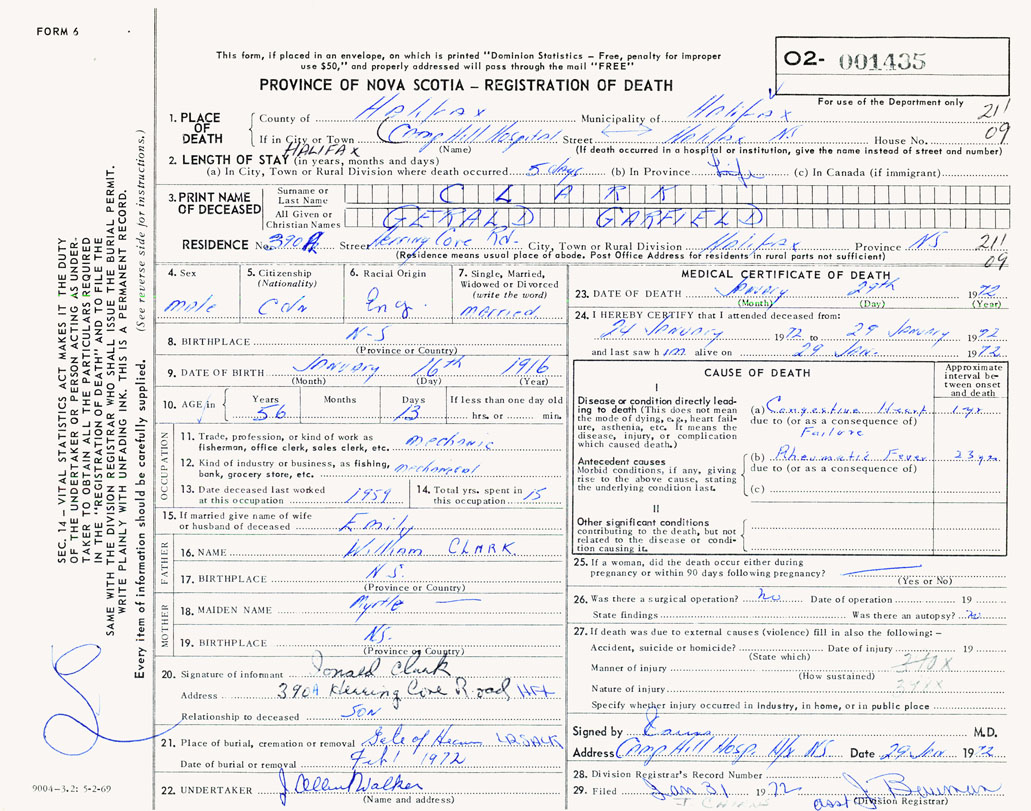 FORM 6
This form, if placed in an envelope, on which is printed "Dominion Statistics – Free, penalty for improper
use $50," and properly addressed will pass through the mail "FREE"
O2- 001435
PROVINCE OF NOVA SCOTIA – REGISTRATION OF DEATH
For use of the Department only
1. PLACE OF DEATH
County of Halifax Municipality of Halifax 211
If in City or Town Camp Hill Hospital Street Halifax NS House No. 09
HALIFAX (Name) (If death occurred in a hospital or institution, give the name instead of street and number)
2. LENGTH OF STAY (in years, months and days)
(a) In City, Town or Rural Division where death occurred 5 days (b) In Province Life (c) In Canada (if immigrant)
3. PRINT NAME OF DECEASED
Surname or Last Name CLARK
All Given or Christian Names GERALD GARFIELD
RESIDENCE No. 390A Street Herring Cove Rd. City, Town or Rural Division Halifax Province NS 211
(Residence means usual place of abode. Post Office Address for residents in rural parts not sufficient) 09
4. Sex
male
5. Citizenship
(Nationality)
Cdn
6. Racial Origin
Eng.
7. Single, Married,
Widowed or Divorced
(write the word)
married.
8. BIRTHPLACE N-S
(Province or Country)
9. DATE OF BIRTH January 16th 1916
(Month) (Day) (Year)
10. AGE in Years 56 Months Days 13 If less than one day old
hrs. or min.
OCCUPATION
11. Trade, profession, or kind of work as
fisherman, office clerk, sales clerk, etc. mechanic
12. Kind of industry or business, as fishing,
bank, grocery store, etc. mechanical
13. Date deceased last worked
at this occupation 1959
14. Total yrs. spent in
this occupation 15
15. If married give name of wife
or husband of deceased Emily
FATHER
16. NAME William CLARK.
17. BIRTHPLACE N.S.
(Province or Country)
MOTHER
18. MAIDEN NAME Myrtle
19. BIRTHPLACE NS.
(Province or Country)
20. Signature of informant Donald Clark
Address 390A Herring Cove Road Hfx
Relationship to deceased SON
21. Place of burial, cremation or removal Gate of Heaven LR SACK
Date of burial or removal Feb 1 1972
22. UNDERTAKER J Albert Walker
(Name and address)
MEDICAL CERTIFICATE OF DEATH
23. DATE OF DEATH January 29th 1972
(Month) (Day) (Year)
24. I HEREBY CERTIFY that I attended deceased from:
24 January 1972 to 29 January 1972
and last saw him alive on 29 Jan. 1972
CAUSE OF DEATH
Approximate
interval be-
tween onset
and death
I
Disease or condition directly lead-
ing to death (This does not mean
the mode of dying, e.g., heart fail-
ure, asthenia, etc. It means the
disease, injury, or complication
which caused death.)
(a) Congestive Heart 1 yr
due to (or as a consequence of)
Failure
Antecedent causes
Morbid conditions, if any, giving
rise to the above cause, stating
the underlying condition last.
(b) Rheumatic Fever 23 yrs
due to (or as a consequence of)
(c)
II
Other significant conditions
contributing to the death, but not
related to the disease or condi-
tion causing it.
25. If a woman, did the death occur either during
pregnancy or within 90 days following pregnancy?
(Yes or No)
26. Was there a surgical operation? No Date of operation 19
State findings Was there an autopsy? No
27. If death was due to external causes (violence) fill in also the following: –
Accident, suicide or homicide? Date of injury 19
(State which)
Manner of injury
(How sustained)
Nature of injury
Specify whether injury occurred in Industry, in home, or in public place
Signed by M.D.
Address Camp Hill Hosp. Hfx NS Date 29 Jan. 1972
28. Division Registrar's Record Number
29. Filed Jan 31 1972 asst J. Bowman
(Division Registrar)
SEC. 14 – VITAL STATISTICS ACT MAKES IT THE DUTY
OF THE UNDERTAKER OR PERSON ACTING AS UNDER-
TAKER TO OBTAIN ALL THE PARTICULARS REQUIRED
IN THE "REGISTRATION OF DEATH" AND TO FILE THE
SAME WITH THE DIVISION REGISTRAR WHO SHALL ISSUE THE BURIAL PERMIT.
WRITE PLAINLY WITH UNFADING INK. THIS IS A PERMANENT RECORD.
Every item of information should be carefully supplied. (See reverse side for instructions.)
9004–3.2: 5-2-69